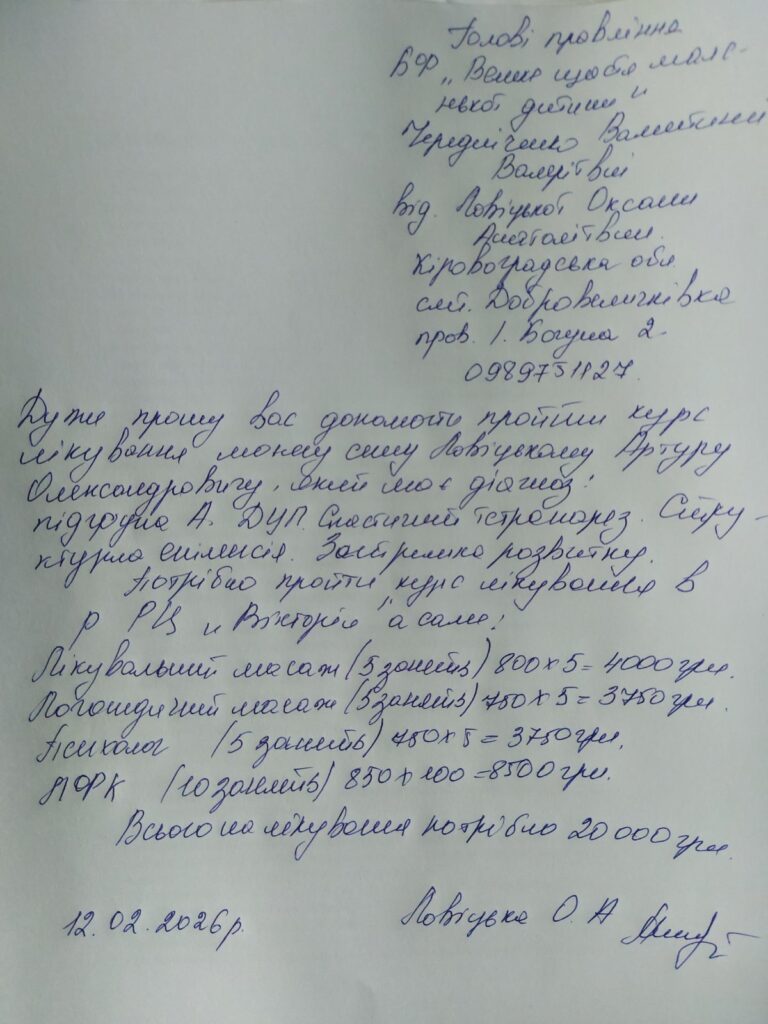 Голові правління
БФ „Велике щастя мале-
нької дитини"
Чередніченко Валентині
Валеріївни
від. Ловіцької Оксани
Анатоліївни.
Кіровоградська обл
смт. Добровеличківка
пров. І. Богуна 2.
0989751127.
Дуже прошу вас допомогти пройти курс
лікування моєму сину Ловіцькому Артуру
Олександровичу, який має діагноз:
підгрупа А. ДЦП. Спастичний тетрапарез. Стру-
ктурна епілепсія. Затримка розвитку.
Потрібно пройти курс лікування в
р РЦ „Вікторія" а саме:
Лікувальний масаж (5 занять) 800 х 5 = 4000 грн.
Логопедичний масаж (5 занять) 750 х 5 = 3750 грн.
Психолог (5 занять) 750 х 5 = 3750 грн.
ЛФК (10 занять) 850 х 100 = 8500 грн.
Всього на лікування потрібно 20 000 грн.
12.02.2026 р. Ловіцька О. А